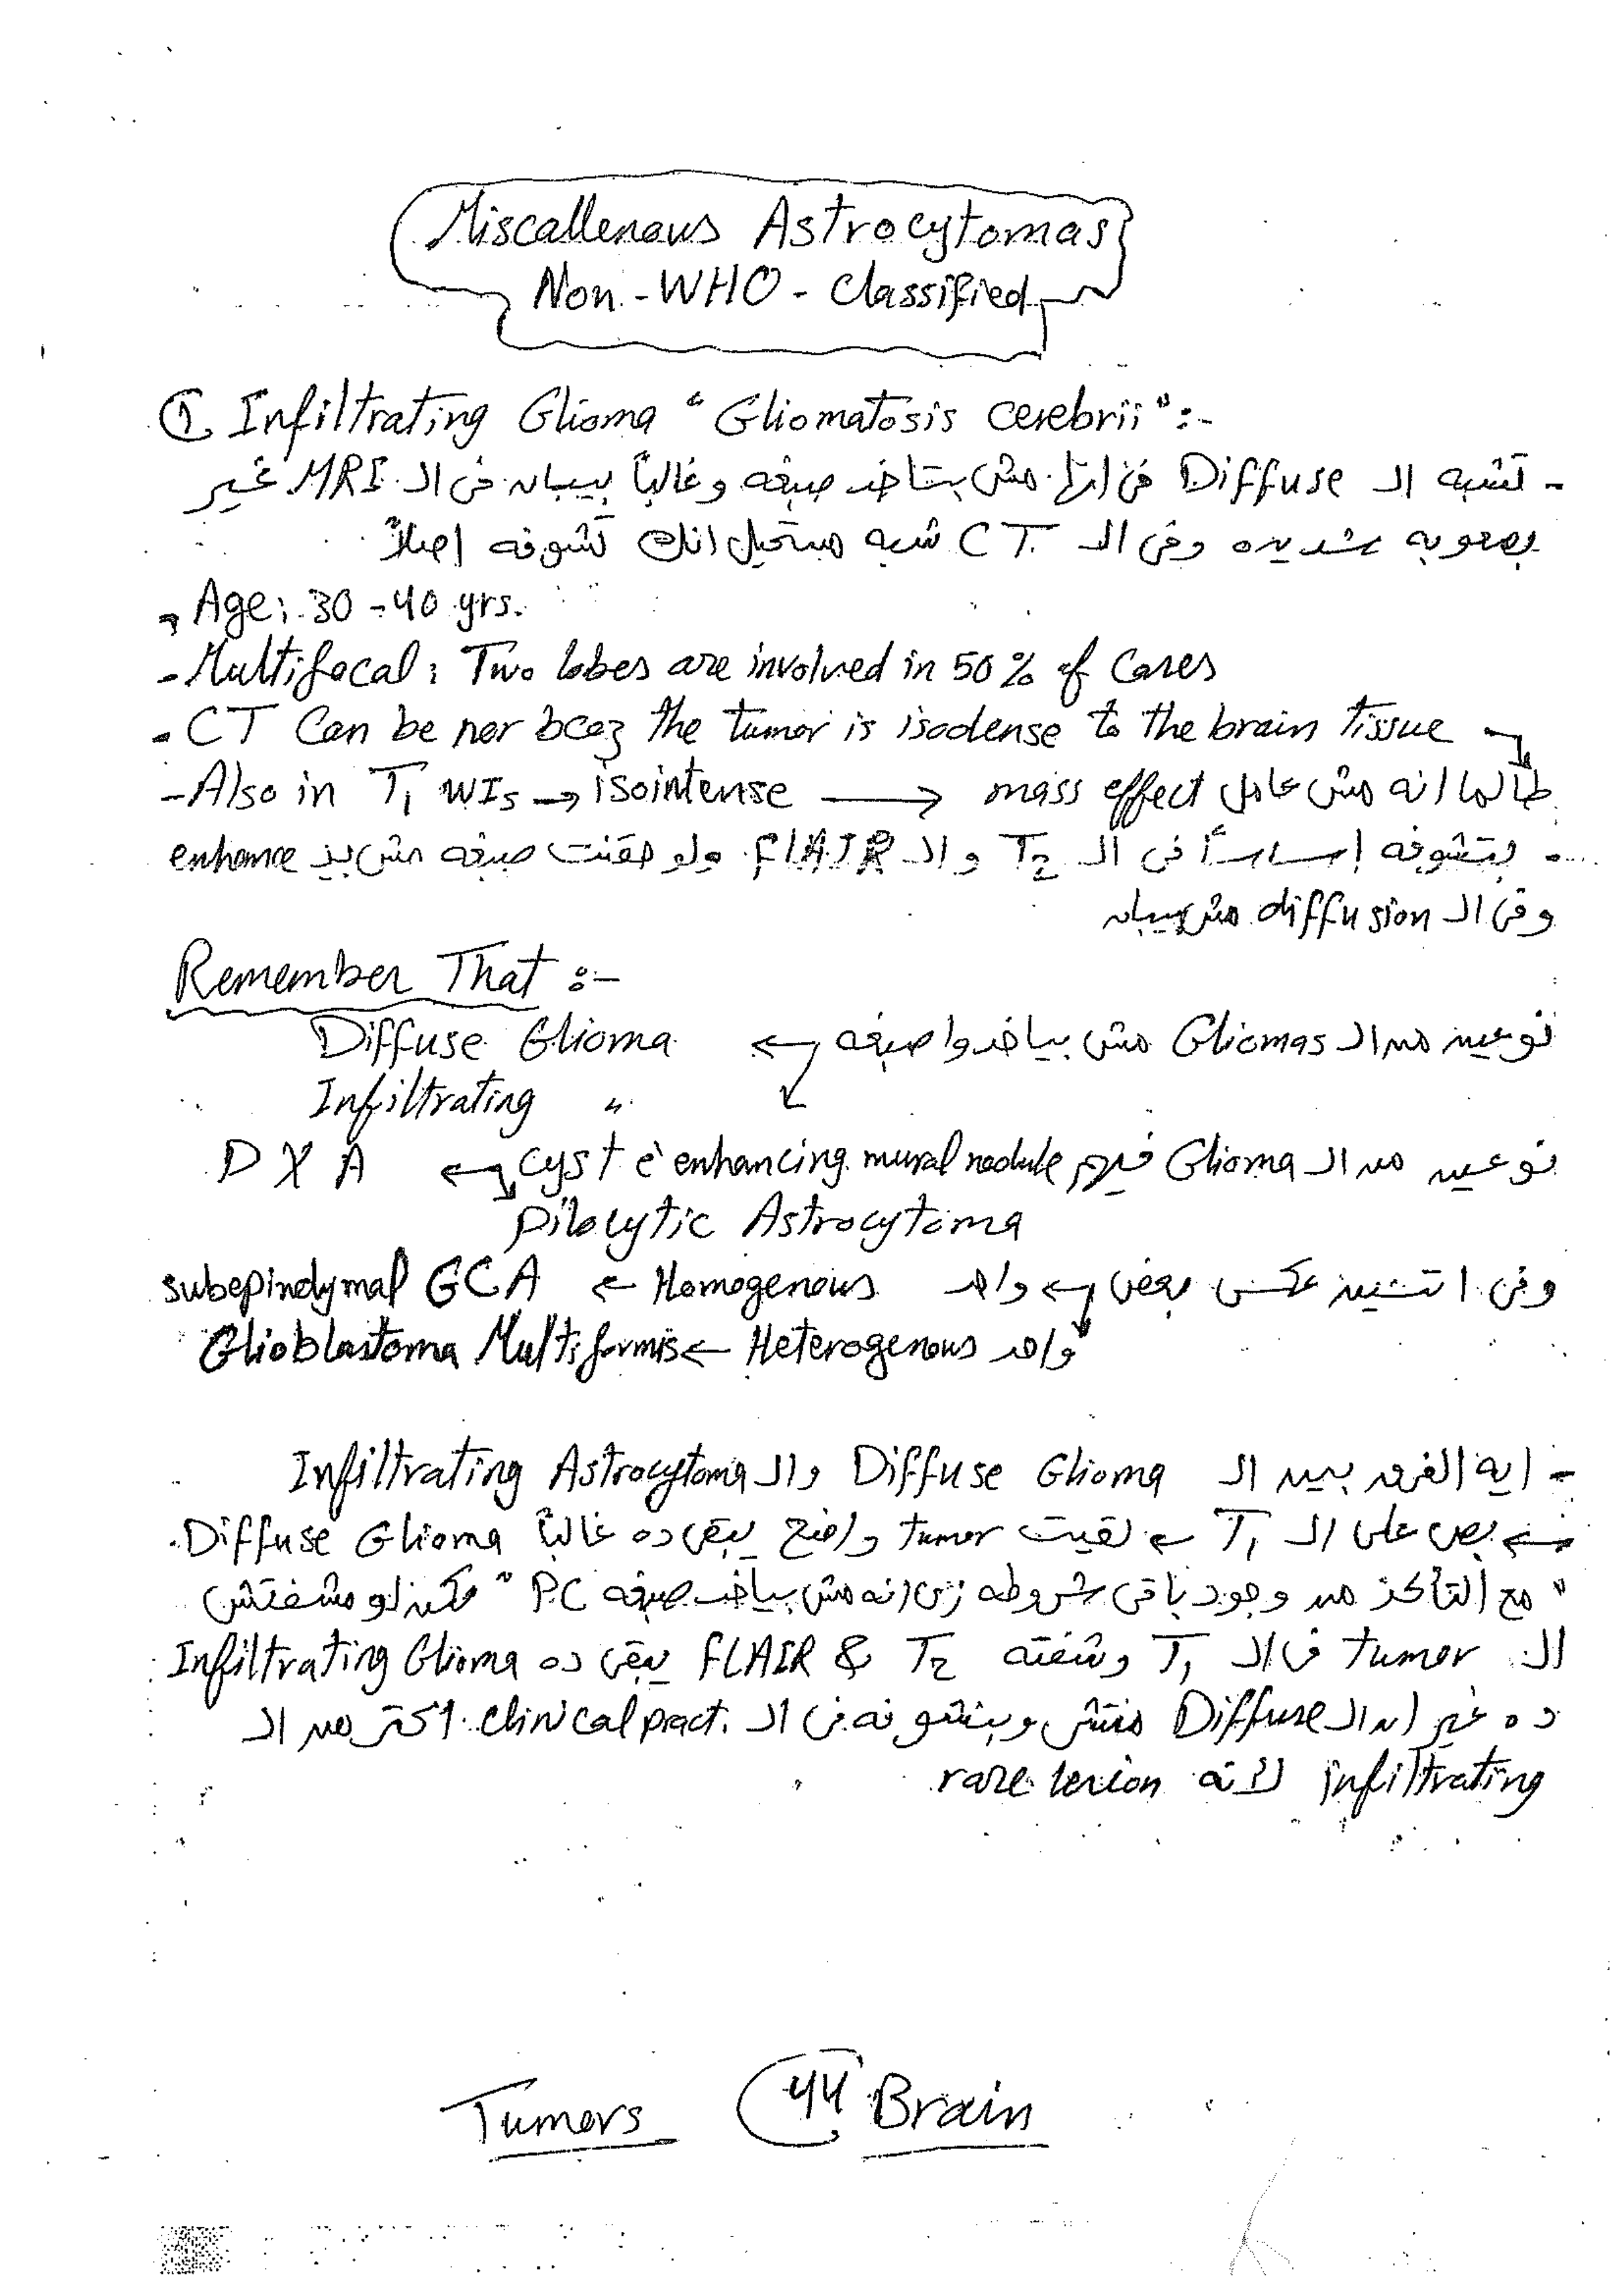 Miscallenous Astrocytomas
Non-WHO-Classified
① Infiltrating Glioma "Gliomatosis cerebrii" :-
- تشبه الـ Diffuse في انها مش بتاخد صبغه وغالباً بيبان في الـ MRI غير
بصعوبه شديده وفى الـ CT شبه مستحيل انك تشوفه اصلاً
- Age: 30-40 yrs.
- Multifocal: Two lobes are involved in 50% of Cases
- CT Can be nor bcoz the tumor is isodense to the brain tissue
- Also in T1 WIs → isointense → طالما انه مش عامل mass effect
- بتشوفه اساساً فى الـ T2 والـ FLAIR ولو حقنت صبغه مش بيـ enhance
وفى الـ diffusion مش بيبان
Remember That :-
نوعين من الـ Gliomas مش بياخدوا صبغه ← Diffuse Glioma
Infiltrating "
نوعين من الـ Glioma فيهم cyst ē enhancing mural nodule ← D X A
Pilocytic Astrocytoma
وفى اتنين عكس بعض ← واحد Homogenous ← subepindymal GCA
واحد Heterogenous ← Glioblastoma Multiformis
- ايه الفرق بين الـ Diffuse Glioma والـ Infiltrating Astrocytoma
← بص على الـ T1 ← لقيت tumor واضح يبقى ده غالباً Diffuse Glioma
"مع التأكد من وجود باقى شروطه زى انه مش بياخد صبغه PC" لكن لو مشفتش
الـ tumor فى الـ T1 وشفته T2 & FLAIR يبقى ده Infiltrating Glioma
ده غير ان الـ Diffuse منتش وبنشوفه فى الـ clinical pract. اكتر من الـ
infiltrating لانه rare lesion
Tumors 44 Brain